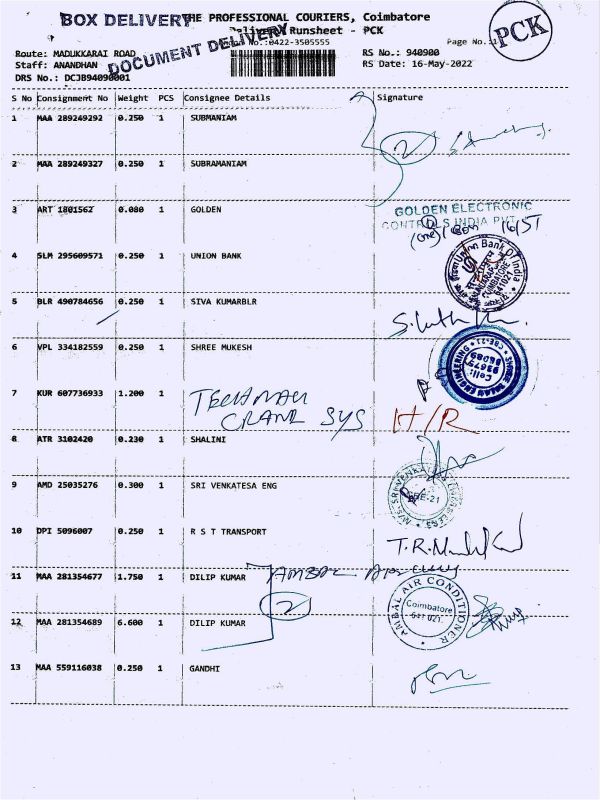 BOX DELIVERY THE PROFESSIONAL COURIERS, Coimbatore
Delivery Runsheet - PCK
DOCUMENT DELIVERY
No.:0422-3505555
Page No.:1
PCK
Route: MADUKKARAI ROAD
RS No.: 940900
Staff: ANANDHAN
RS Date: 16-May-2022
DRS No.: DCJB94090001
S No Consignment No Weight PCS Consignee Details Signature
1 MAA 289249292 0.250 1 SUBMANIAM
2
2 MAA 289249327 0.250 1 SUBRAMANIAM
3 ART 1801562 0.080 1 GOLDEN
GOLDEN ELECTRONIC
CONTROLS INDIA PVT
16/5
4 SLM 295609571 0.250 1 UNION BANK
Union Bank Of India
COIMBATORE
641021
5 BLR 490784656 0.250 1 SIVA KUMARBLR
6 VPL 334182559 0.250 1 SHREE MUKESH
ENGINEERING
CBE-21
Cell:
7 KUR 607736933 1.200 1 TECHMAN
CRANE SYS
H/R
8 ATR 3102420 0.230 1 SHALINI
9 AMD 25035276 0.300 1 SRI VENKATESA ENG
CBE-21
10 DPI 5096007 0.250 1 R S T TRANSPORT
11 MAA 281354677 1.750 1 DILIP KUMAR
AMBAL AIR CONDITIONER
Coimbatore
641 021.
2
12 MAA 281354689 6.600 1 DILIP KUMAR
13 MAA 559116038 0.250 1 GANDHI